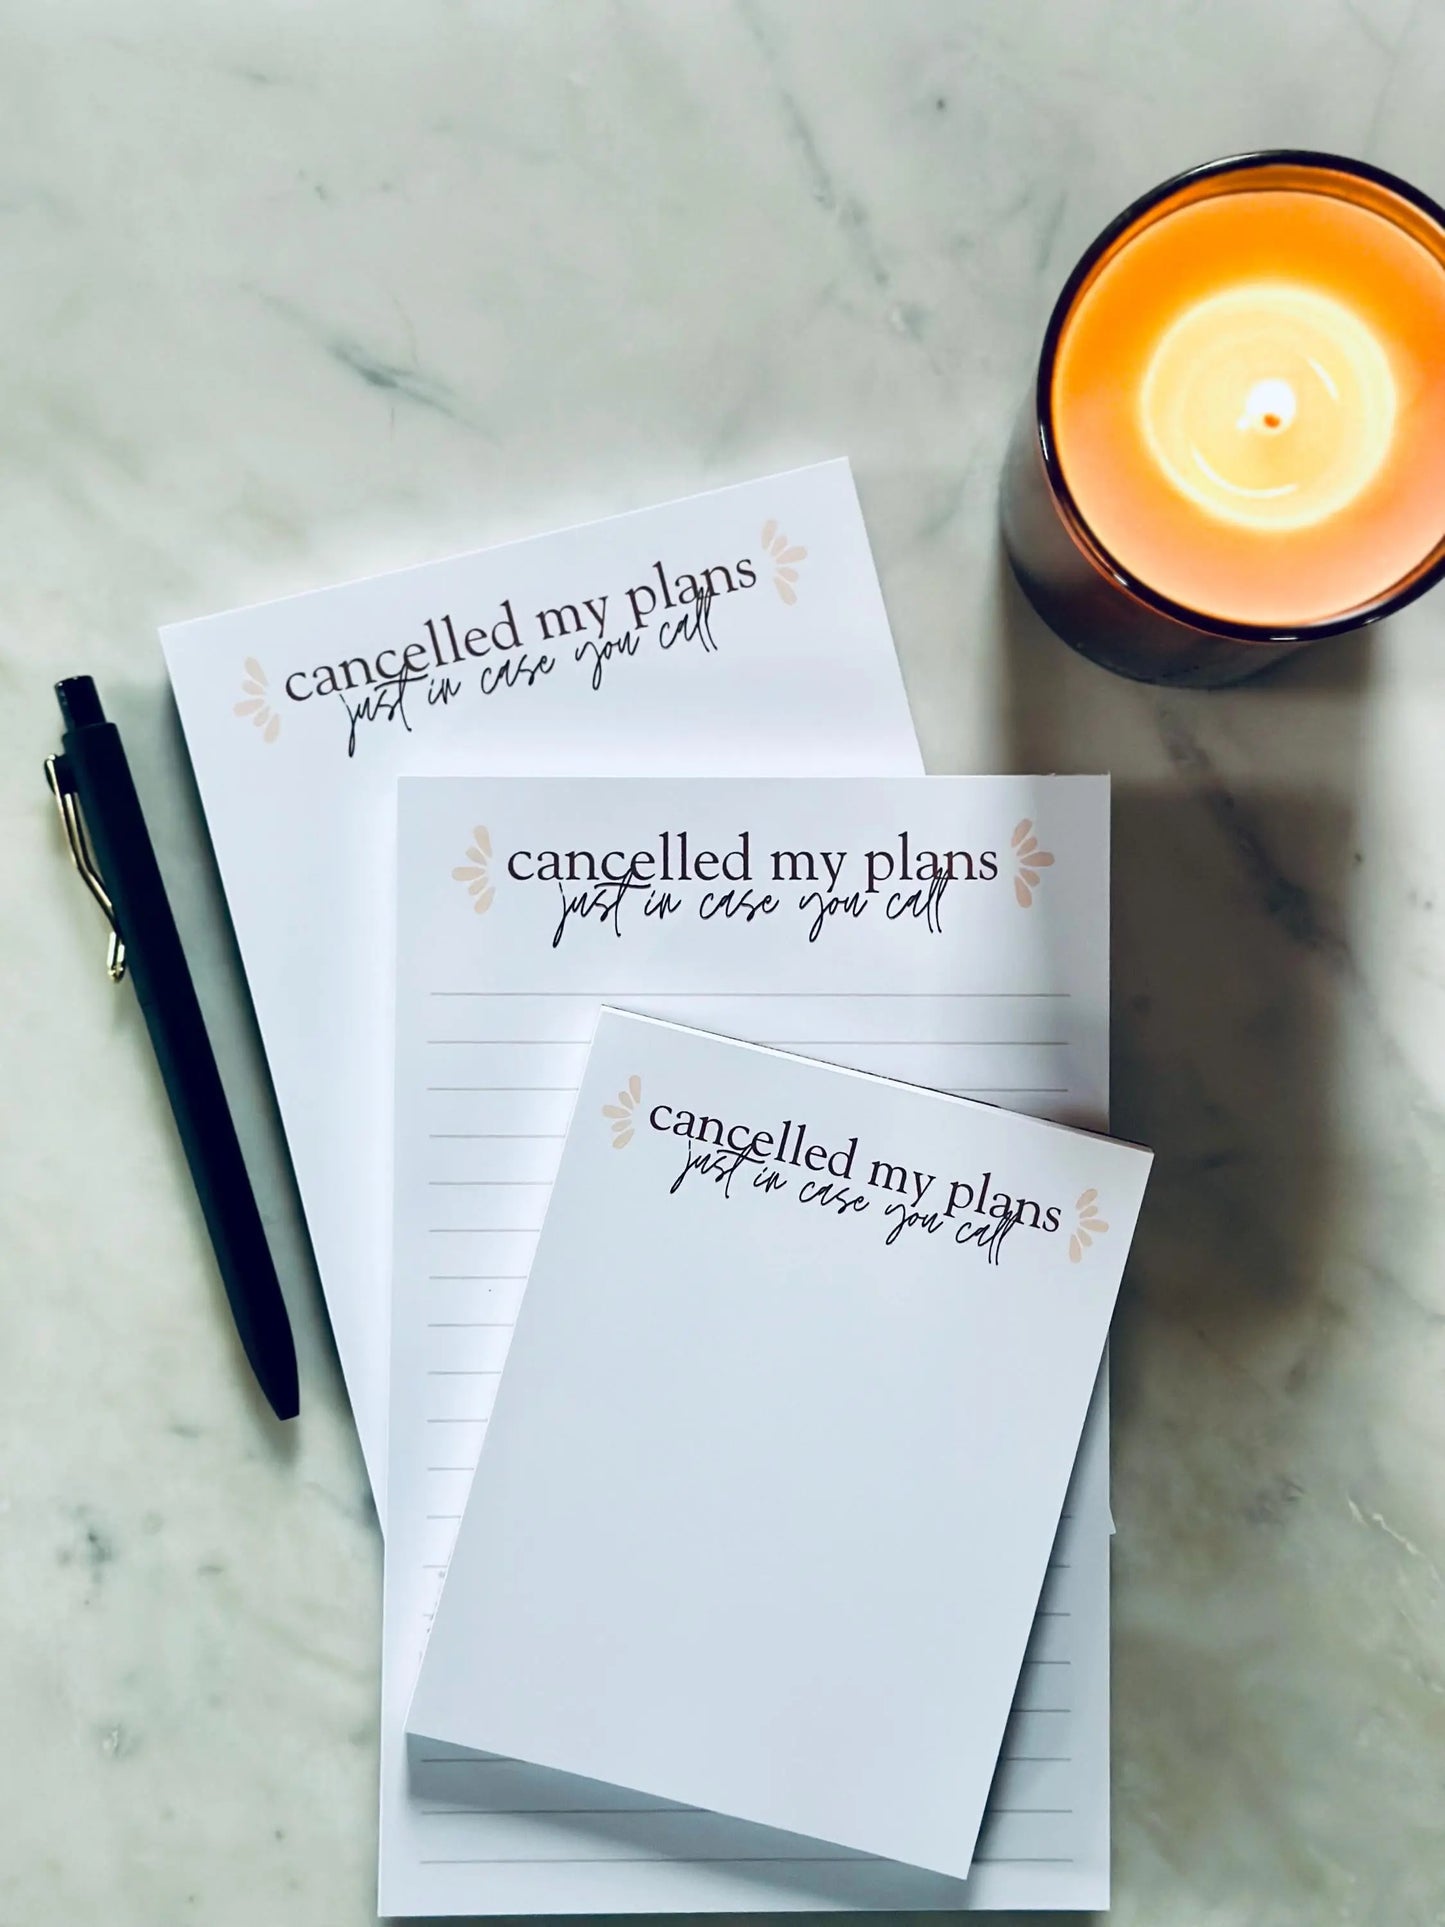 cancelled my plans
just in case you call
cancelled my plans
just in case you call
cancelled my plans
just in case you call